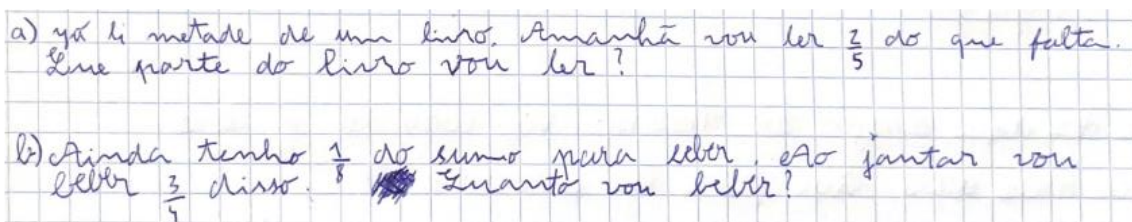 a) já li metade de um livro. Amanhã vou ler 2/5 do que falta.
Que parte do livro vou ler?
b) Ainda tenho 1/8 do sumo para beber. Ao jantar vou
beber 3/4 disso. Quanto vou beber?